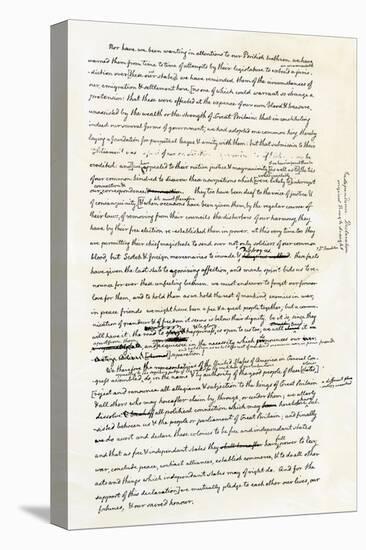 Nor have we been wanting in attentions to our British brethren. we have
warned them from time to time of attempts by their legislature to extend a juris-
-diction over [these our states] we have reminded them of the circumstances of
our emigration & settlement here [no one of which could warrant so strange a
pretension: that these were effected at the expence of our own blood & treasure,
unassisted by the wealth or the strength of Great Britain: that in constituting
indeed our several forms of government, we had adopted one common king, thereby
laying a foundation for perpetual league & amity with them: but that submission to their
credited: and] we appealed to their native justice & magnanimity [as well as to] the ties
of our common kindred to disavow these usurpations which [were likely to] interrupt
our correspondence & connection. they too have been deaf to the voice of justice &
of consanguinity [& when occasions have been given them, by the regular course of
their laws, of removing from their councils the disturbers of our harmony, they
have by their free election re-established them in power. at this very time too they
are permitting their chief magistrate to send over not only soldiers of our common
blood, but Scotch & foreign mercenaries to invade & destroy us. these facts
have given the last stab to agonizing affection, and manly spirit bids us to re-
-nounce for ever these unfeeling brethren. we must endeavor to forget our former
love for them, and to hold them as we hold the rest of mankind, enemies in war,
in peace friends. we might have been a free & a great people together; but a commu-
-nication of grandeur & of freedom it seems is below their dignity. be it so, since they
will have it: the road to happiness & to glory is open to us too; we will
and acquiesce in the necessity which our
separation]
We therefore the representatives of the United States of America in General Con-
-gress assembled, do in the name, & by authority of the good people of these [states]
[reject and renounce all allegiance & subjection to the kings of Great Britain
& all others who may hereafter claim by, through, or under them; we utterly
dissolve all political connection which may have heretofore sub-
-sisted between us & the people or parliament of Great Britain; and finally
we do assert and declare these colonies to be free and independant states,]
and that as free & independant states they have full power to levy
war, conclude peace, contract alliances, establish commerce, & to do all other
acts and things which independant states may of right do. And for the
support of this declaration we mutually pledge to each other our lives, our
fortunes, & our sacred honour.
Independence Declaration
original Rough draught